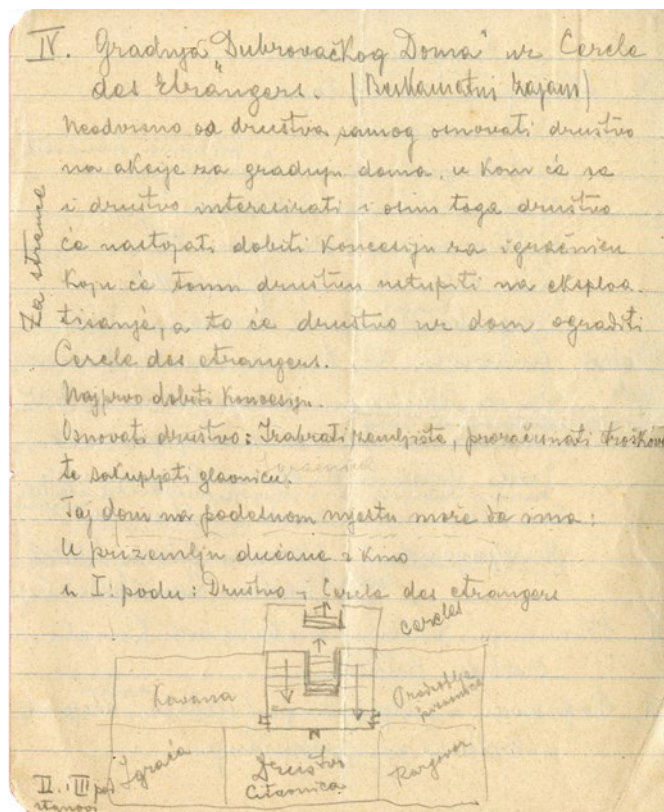 IV. Gradnja "Dubrovačkog Doma" uz Cercle
des etrangers. (Beskamatni zajam)
Neodvisno od društva samog osnovati društvo
na akcije za gradnju doma, u kom će se
i društvo interesirati i osim toga društvo
će nastojati dobiti koncesiju za igračnicu
koju će tomu društvu ustupiti na eksploa-
tisanje, a to će društvo uz dom ograditi
Cercle des etrangers.
Najprvo dobiti koncesiju.
Osnovati društvo: Izabrati zemljište, proračunati troškove
te sakupljati glavnicu.
Taj dom na podesnom mjestu može da ima:
U prizemlju dućane i kino
u I. podu: Društvo i Cercle des etrangers
Za strance
cercles
Kavana
Igrača
Društvo
Čitaonica
Razgovor
II. i III pod
stanovi